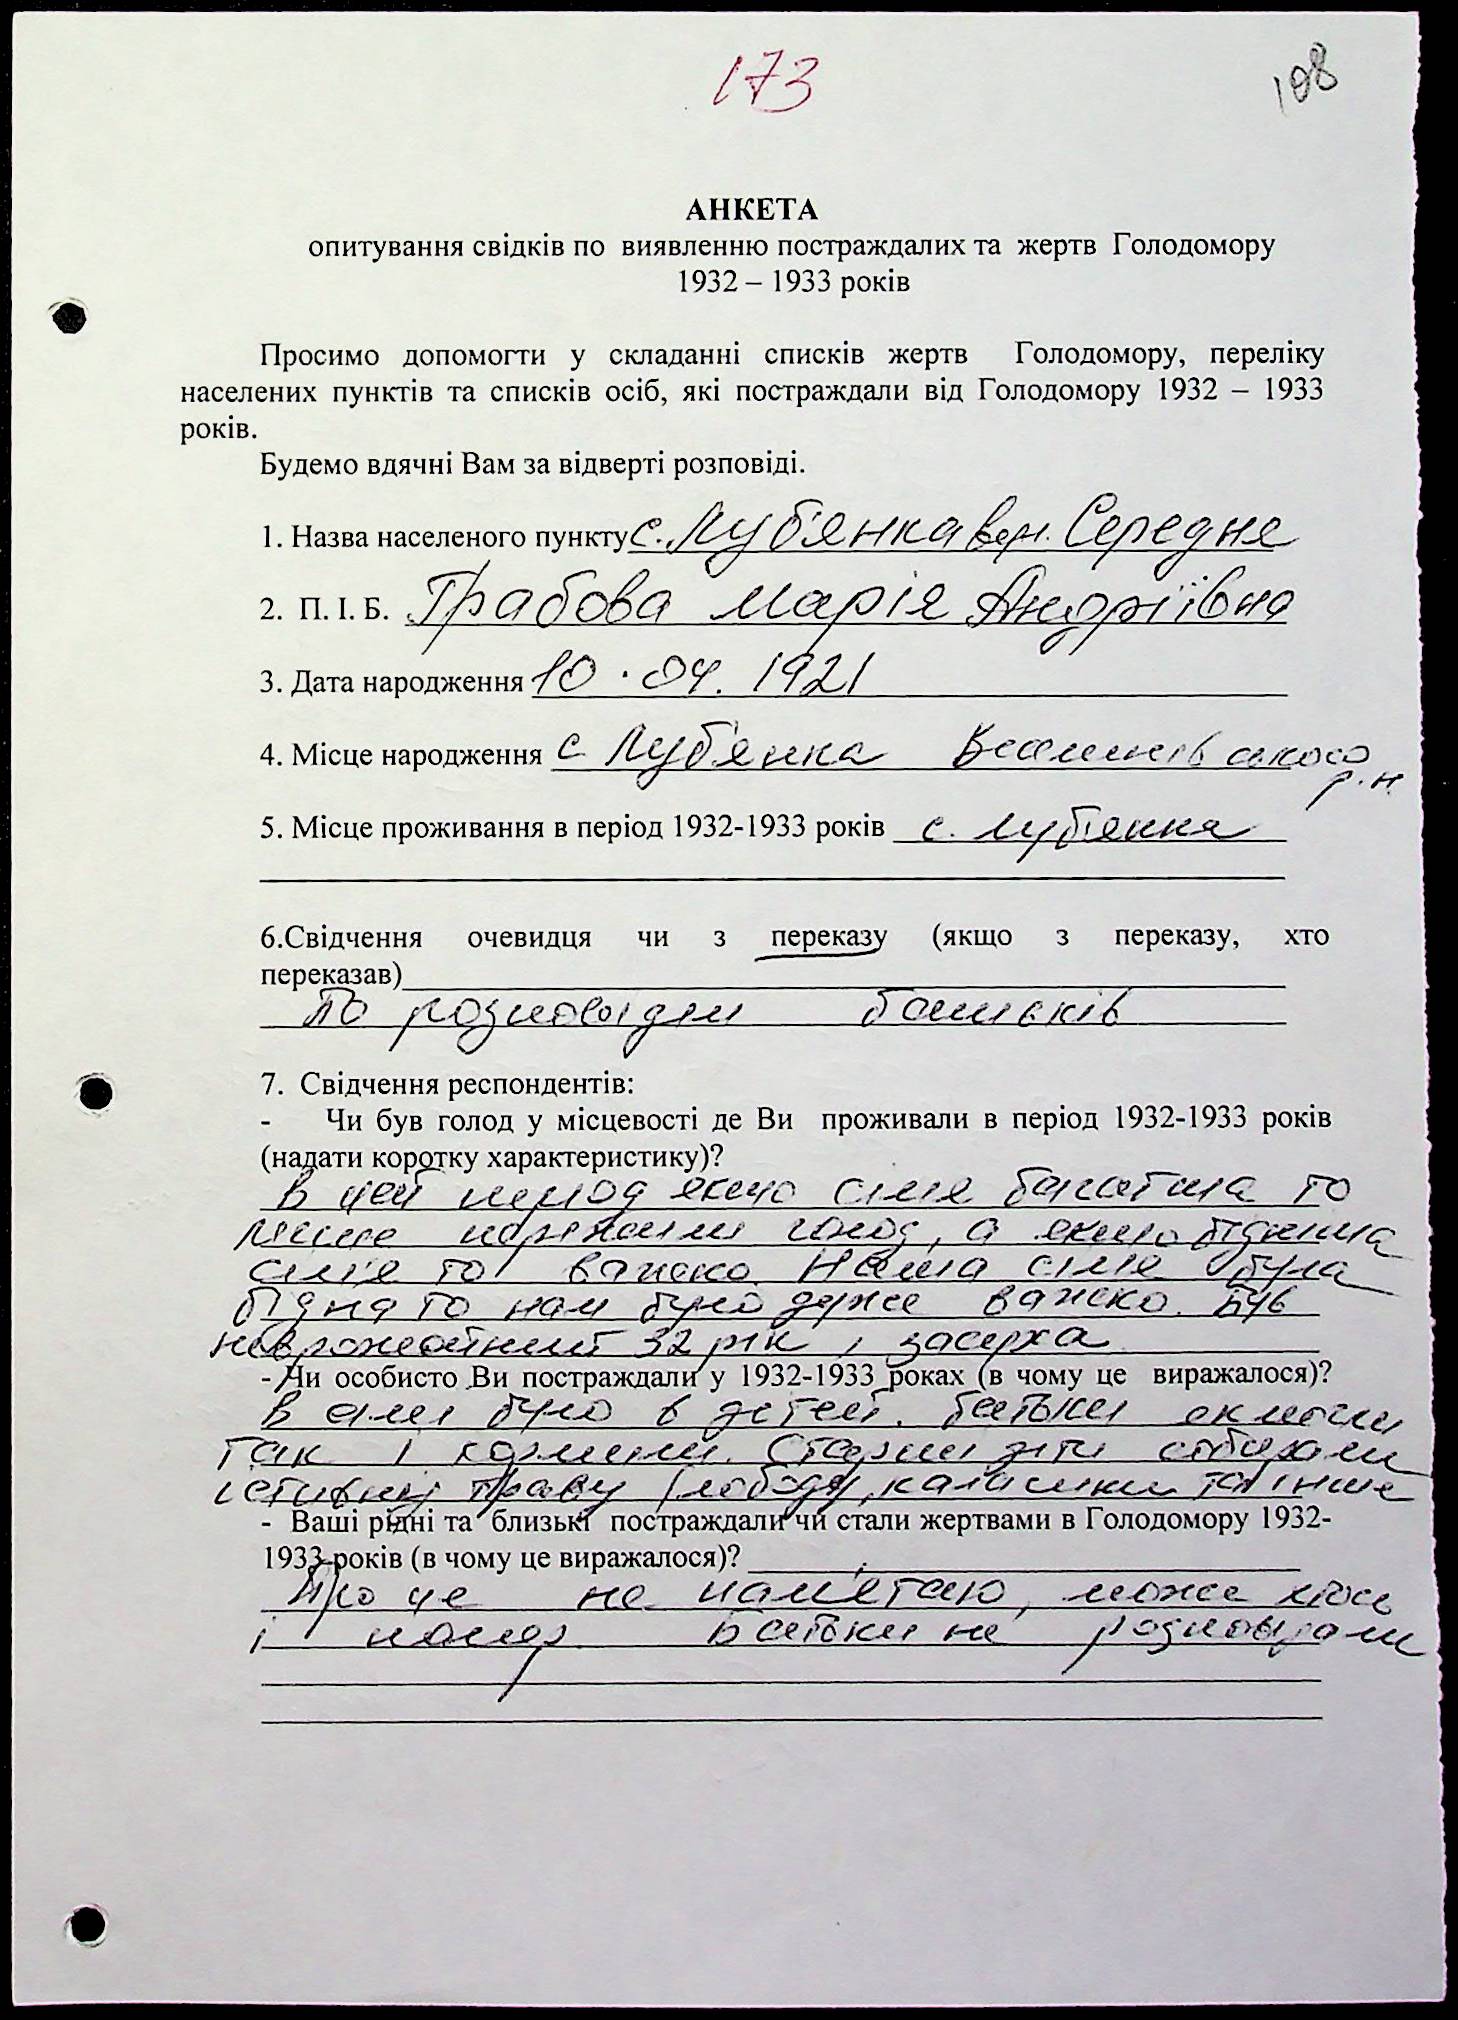 173
108
АНКЕТА
опитування свідків по виявленню постраждалих та жертв Голодомору
1932 – 1933 років
Просимо допомогти у складанні списків жертв Голодомору, переліку
населених пунктів та списків осіб, які постраждали від Голодомору 1932 – 1933
років.
Будемо вдячні Вам за відверті розповіді.
1. Назва населеного пункту с. Луб'янка вул. Середня
2. П. І. Б. Грабова Марія Андріївна
3. Дата народження 10.04.1921
4. Місце народження с Луб'янка
р.н.
5. Місце проживання в період 1932-1933 років с. Луб'янка
6.Свідчення очевидця чи з переказу (якщо з переказу, хто
переказав)
По розповідям батьків
7. Свідчення респондентів:
- Чи був голод у місцевості де Ви проживали в період 1932-1933 років
(надати коротку характеристику)?
В цей період якщо сім'я багатша то
легше пережили голод, а якщо бідніша
сім'я то важко. Наша сім'я була
бідна то нам було дуже важко. Був
неврожайний 32 рік і засуха
- Чи особисто Ви постраждали у 1932-1933 роках (в чому це виражалося)?
В сім'ї було 6 дітей. Батьки як могли
так і кормили. Старші діти збирали
їстивну траву (лободу, калачики та інше
- Ваші рідні та близькі постраждали чи стали жертвами в Голодомору 1932-
1933 років (в чому це виражалося)?
Про це не пам'ятаю, може хтось
і помер. Батьки не розповідали